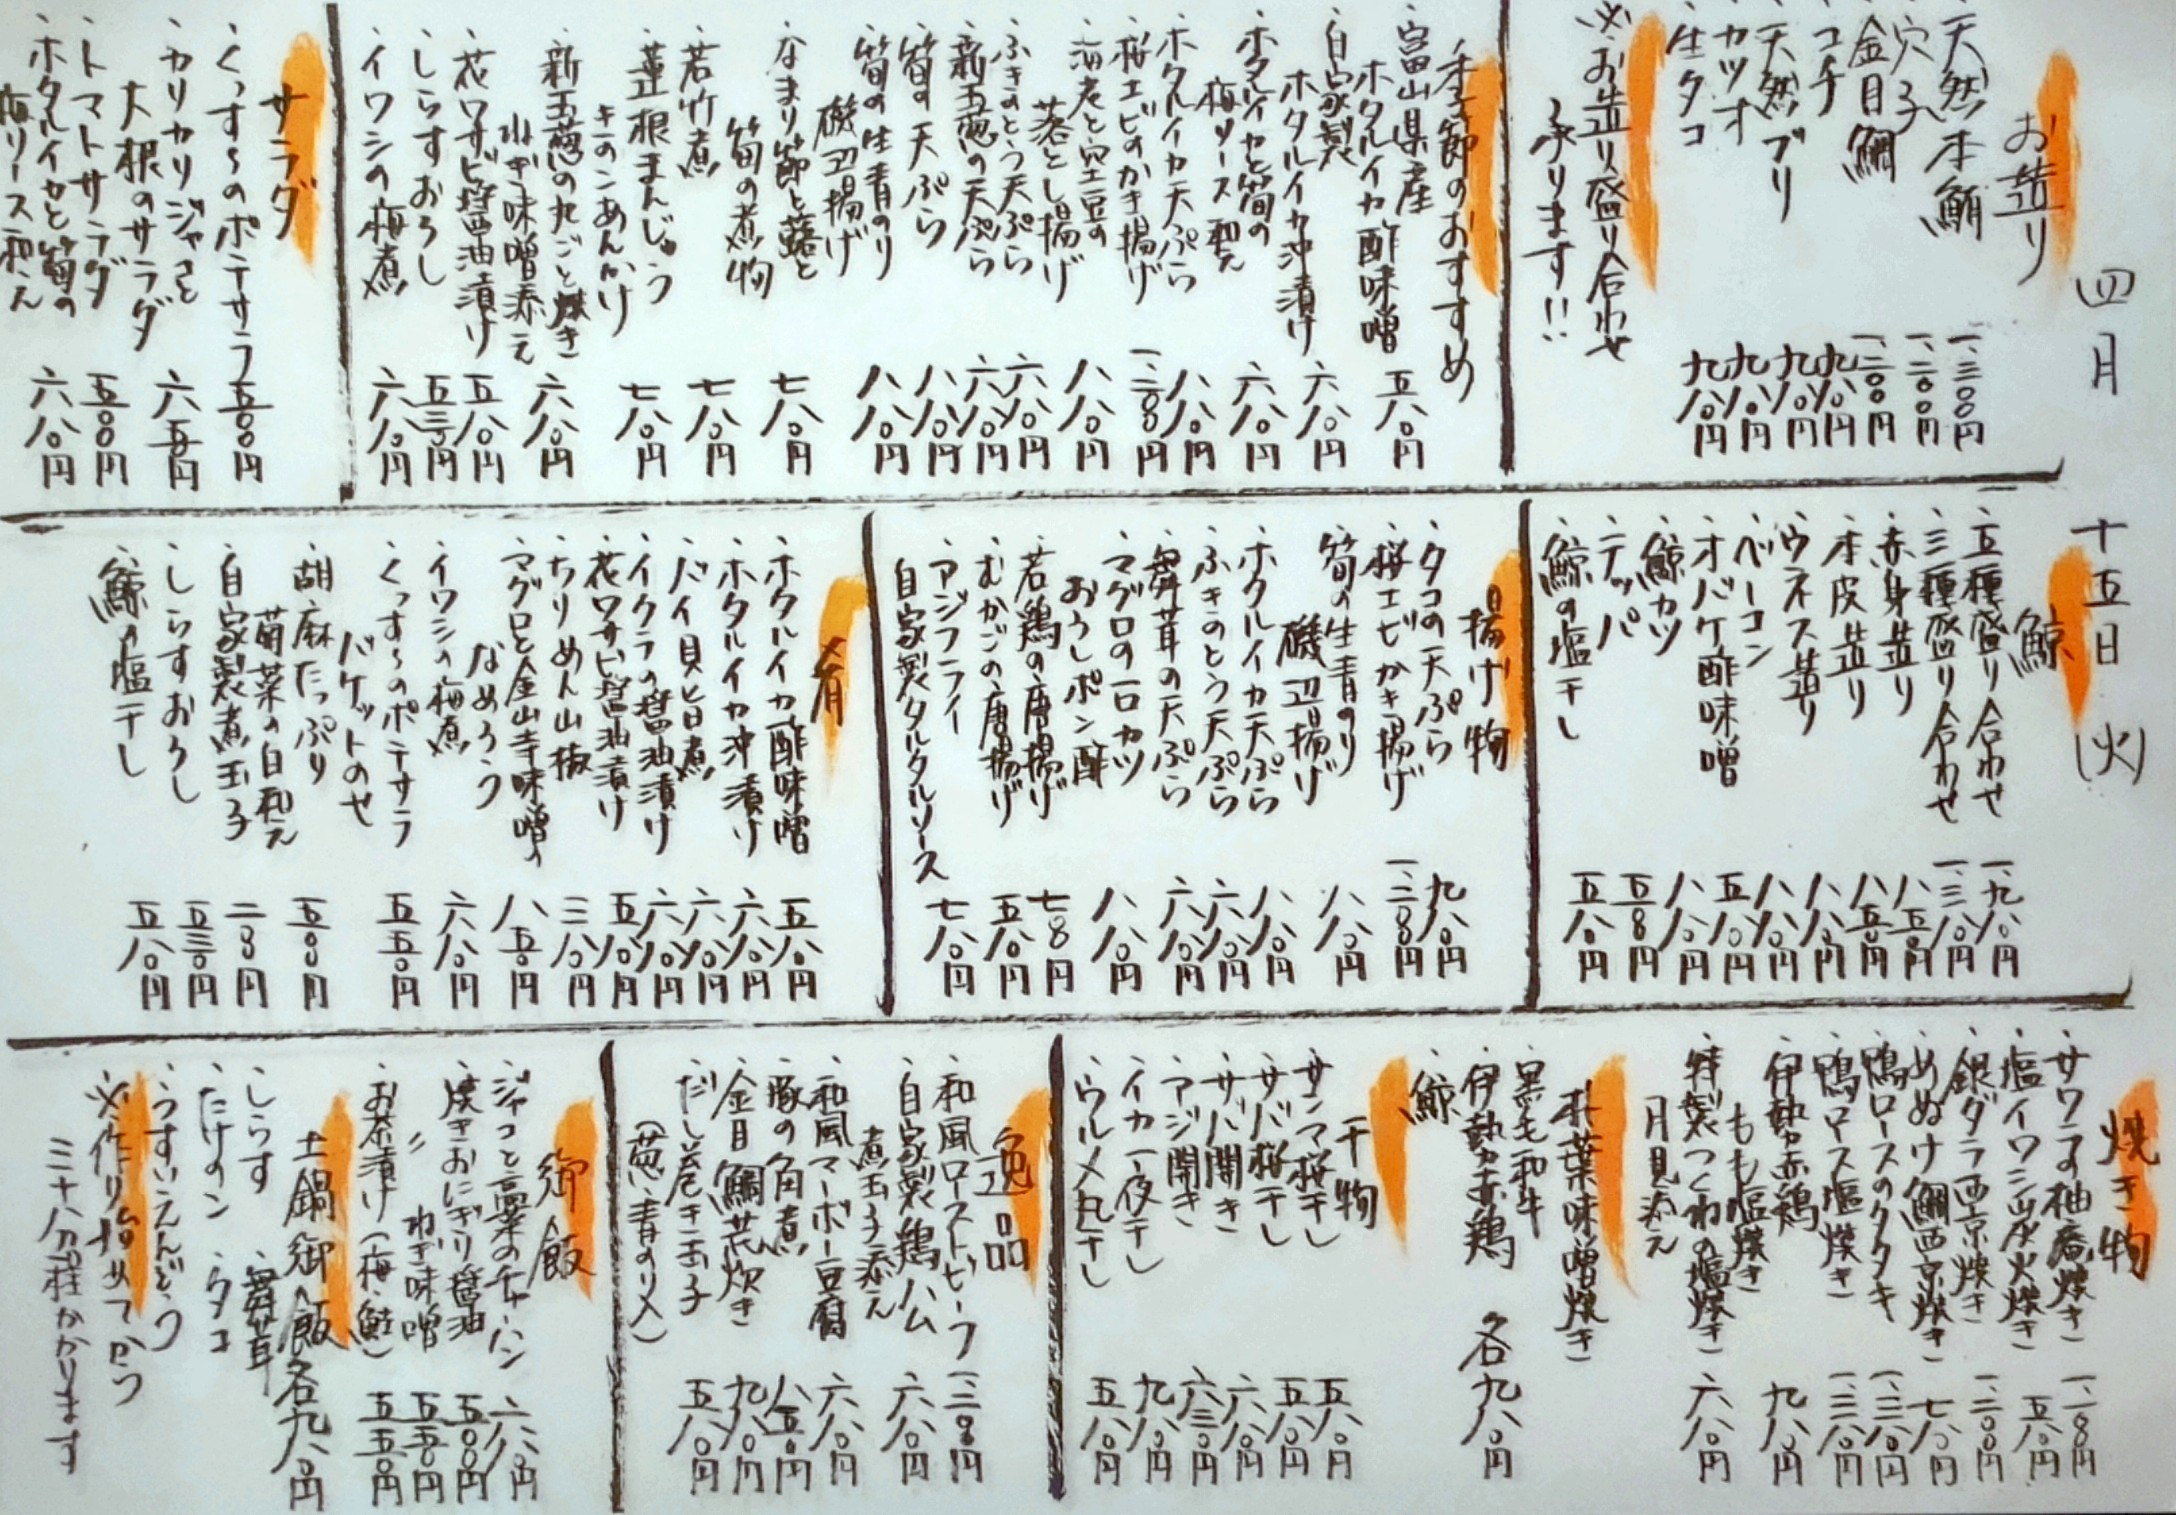 四月 十五日(火)
お造り
・天然本鮪 一、三〇〇円
・穴子 一、二〇〇円
・金目鯛 一、二〇〇円
・コチ 九八〇円
・天然ブリ 九八〇円
・カツオ 九八〇円
・生タコ 九八〇円
※お造り盛り合わせ
承ります!!
季節のおすすめ
・富山県産
ホタルイカ酢味噌 五八〇円
・自家製
ホタルイカ沖漬け 六八〇円
・ホタルイカと筍の
梅ソース和え 六八〇円
・ホタルイカ天ぷら 八八〇円
・桜エビのかき揚げ 一、二〇〇円
・海老と空豆の
落とし揚げ 八八〇円
・ふきのとう天ぷら 六八〇円
・新玉葱の天ぷら 六八〇円
・筍の天ぷら 八八〇円
・筍の生青のり
磯辺揚げ 八八〇円
・なまり節と蕗と
筍の煮物 七八〇円
・若竹煮 七八〇円
・蓮根まんじゅう
キノコあんかけ 七八〇円
・新玉葱の丸ごと焼き
ねぎ味噌添え 六八〇円
・花ワサビ醤油漬け 五八〇円
・しらすおろし 五三〇円
・イワシの梅煮 六八〇円
サラダ
・くっす〜のポテサラ 五〇〇円
・カリカリジャコと
大根のサラダ 六五〇円
・トマトサラダ 五〇〇円
・ホタルイカと筍の
梅ソース和え 六八〇円
鯨
・五種盛り合わせ 一、九八〇円
・三種盛り合わせ 一、三八〇円
・赤身造り 八五〇円
・本皮造り 八五〇円
・ウネス造り 八八〇円
・ベーコン 八八〇円
・オバケ酢味噌 五八〇円
・鯨カツ 八八〇円
・テッパ 五〇〇円
・鯨の塩干し 五八〇円
揚げ物
・タコの天ぷら 九八〇円
・桜エビかき揚げ 一、二〇〇円
・筍の生青のり
磯辺揚げ 八八〇円
・ホタルイカ天ぷら 八八〇円
・ふきのとう天ぷら 六八〇円
・舞茸の天ぷら 六八〇円
・マグロの一口カツ
おろしポン酢 八八〇円
・若鶏の唐揚げ 七〇〇円
・むかごの唐揚げ 五八〇円
・アジフライ
自家製タルタルソース 七八〇円
肴
・ホタルイカ酢味噌 五八〇円
・ホタルイカ沖漬け 六八〇円
・バイ貝旨煮 六八〇円
・イクラの醤油漬け 六八〇円
・花ワサビ醤油漬け 五八〇円
・ちりめん山椒 三八〇円
・マグロと金山寺味噌の
なめろう 八五〇円
・イワシの梅煮 六八〇円
・くっす〜のポテサラ
バケットのせ 五五〇円
・胡麻たっぷり
菊菜の白和え 五〇〇円
・自家製煮玉子 二〇〇円
・しらすおろし 五三〇円
・鯨の塩干し 五八〇円
焼き物
・サワラの柚庵焼き 一、一〇〇円
・塩イワシ炭火焼き 五八〇円
・銀ダラ西京焼き 一、二〇〇円
・めぬけ鯛西京焼き 七八〇円
・鴨ロースのタタキ 一、三八〇円
・鴨ロース塩焼き 一、三八〇円
・伊勢赤鶏
もも塩焼き 九八〇円
・特製つくねの塩焼き
月見添え 六八〇円
朴葉味噌焼き
・黒毛和牛
・伊勢赤鶏 各九八〇円
・鯨
干物
・サンマ桜干し 五八〇円
・サバ桜干し 五八〇円
・サバ開き 六八〇円
・アジ開き 六三〇円
・イカ一夜干し 九八〇円
・ウルメ丸干し 五八〇円
逸品
・和風ローストビーフ 一、二〇〇円
・自家製鶏ハム
煮玉子添え 六八〇円
・和風マーボー豆腐 六八〇円
・豚の角煮 八五〇円
・金目鯛荒炊き 九八〇円
・だし巻き玉子 五八〇円
(葱・青のり入)
御飯
・ジャコと高菜のチャーハン 六八〇円
・焼きおにぎり醤油 五〇〇円
・〃 ねぎ味噌 五五〇円
・お茶漬け(梅・鮭) 五五〇円
土鍋御飯各九八〇円
・しらす ・舞茸
・たけのこ ・タコ
・うすいえんどう
※作り始めてから
三十分程かかります